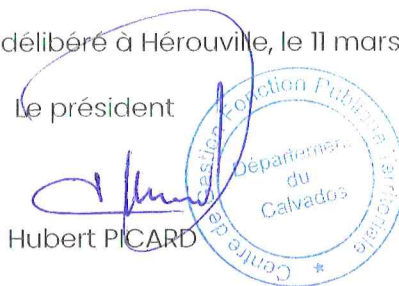 délibéré à Hérouville, le 11 mars
Le président
Hubert PICARD
Centre de Gestion Fonction Publique Territoriale
Département
du
Calvados